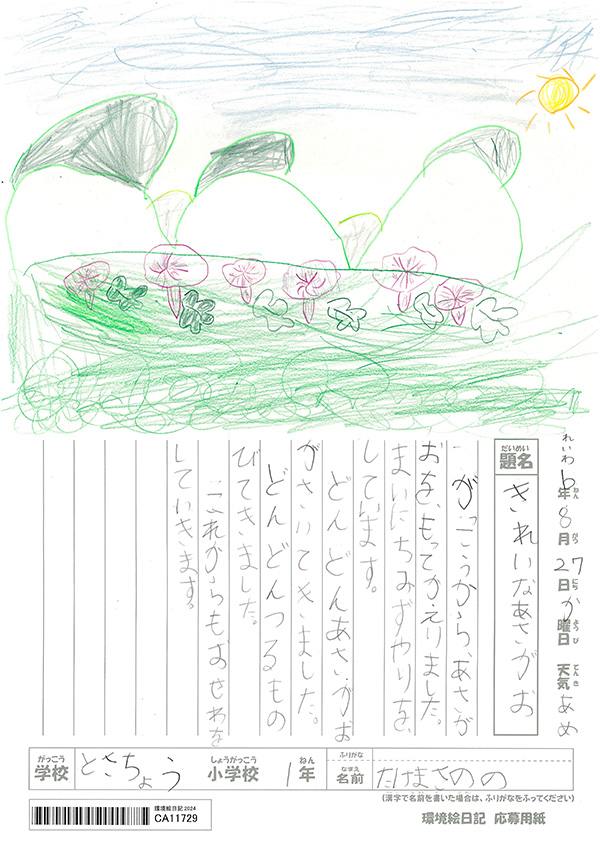 れいわ6年8月27日か曜日 天気あめ
ねん がつ にち ようび てんき
だいめい
題名 きれいなあさがお
がっこうから、あさが
おを、もってかえりました。
まいにちみずやりを、
しています。
どんどんあさがお
がさいてきました。
どんどんつるもの
びてきました。
これからもおせわを
していきます。
がっこう しょうがっこう ねん ふりがな
学校 ときちょう 小学校 1年
なまえ
名前
(漢字で名前を書いた場合は、ふりがなをふってください)
環境絵日記2024
CA11729
環境絵日記 応募用紙